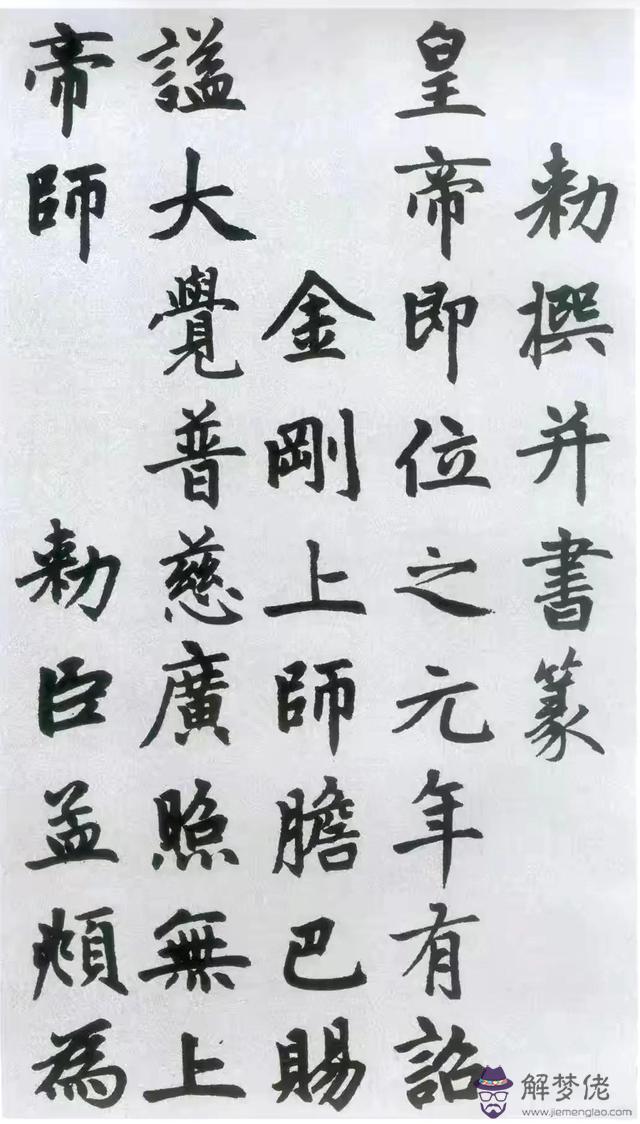 勅撰并書篆
皇帝即位之元年有詔
金剛上師膽巴賜
謚大覺普慈廣照無上
帝師 勅臣孟頫為
解梦佬
www.jiemenglao.com